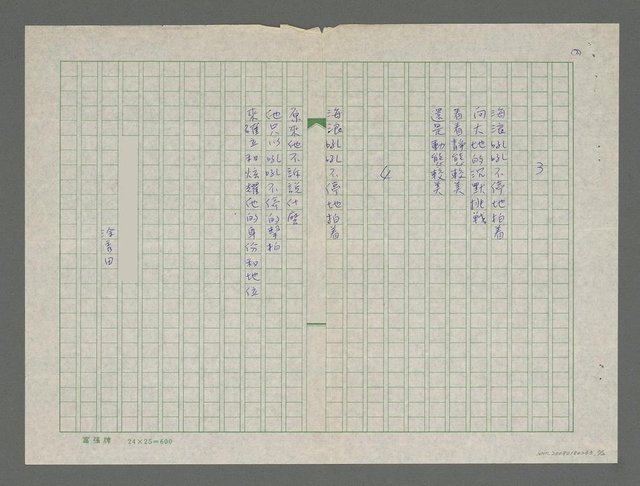 (3)
3
海浪吼吼不停地拍着
向大地的沉默挑戰
看看靜態較美
還是動態較美
4
海浪吼吼不停地拍着
原來他不訴說什麼
他只以吼吼不停的擊拍
來確立和炫耀他的身份和地位
涂青田
富張牌 24×25=600